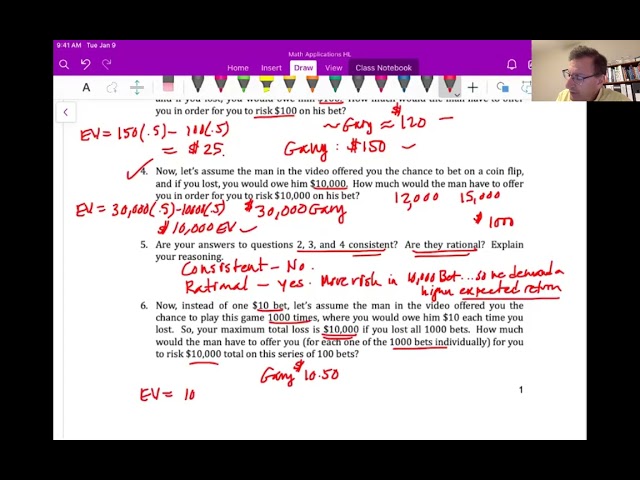 9:41 AM Tue Jan 9
Math Applications HL
Home Insert Draw View Class Notebook
and if you lost, you would owe him $100. How much would the man have to offer
you in order for you to risk $100 on his bet?
~ Gary ≈ $120
EV = 150(.5) - 100(.5)
= $25.
Gary: $150
4. Now, let's assume the man in the video offered you the chance to bet on a coin flip,
and if you lost, you would owe him $10,000. How much would the man have to offer
you in order for you to risk $10,000 on his bet?
12,000 15,000
EV = 30,000(.5) - 10000(.5) $30,000 Gary
$10,000 EV
$1000
5. Are your answers to questions 2, 3, and 4 consistent? Are they rational? Explain
your reasoning.
Consistent - No.
Rational - Yes. More risk in 10,000 Bet... so we demand a
higher expected return
6. Now, instead of one $10 bet, let's assume the man in the video offered you the
chance to play this game 1000 times, where you would owe him $10 each time you
lost. So, your maximum total loss is $10,000 if you lost all 1000 bets. How much
would the man have to offer you (for each one of the 1000 bets individually) for you
to risk $10,000 total on this series of 100 bets?
Gary $10.50
EV = 10
1